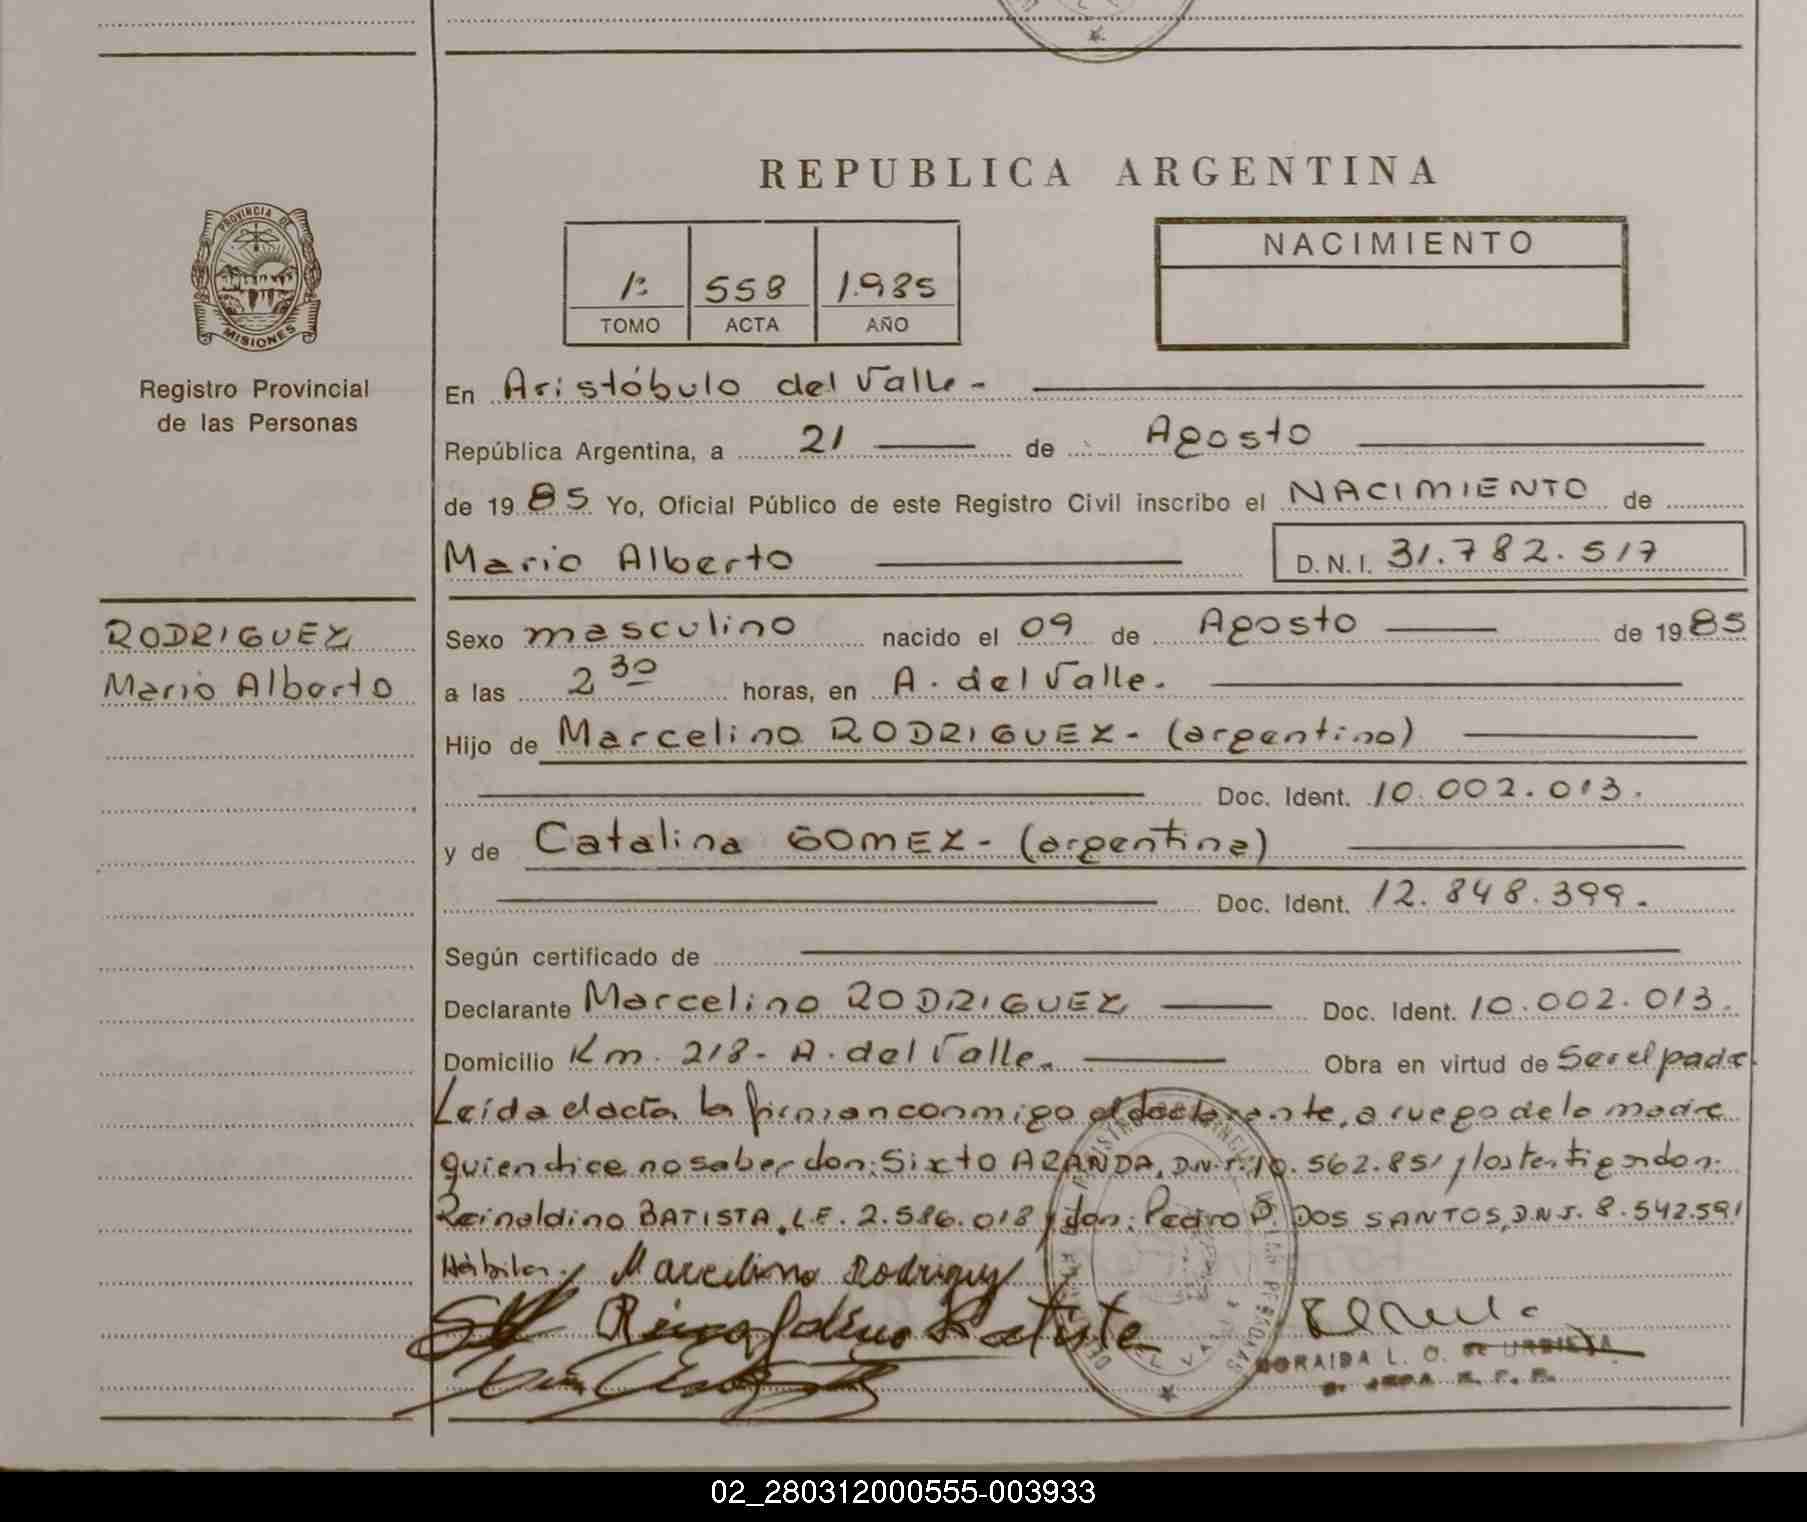 REPUBLICA ARGENTINA
PROVINCIA DE
MISIONES
Registro Provincial
de las Personas
1º 558 1.985
TOMO ACTA AÑO
NACIMIENTO
En Aristóbulo del Valle-
República Argentina, a 21 de Agosto
de 1985 Yo, Oficial Público de este Registro Civil inscribo el NACIMIENTO de
Mario Alberto D.N.I. 31.782.517
RODRIGUEZ
Mario Alberto
Sexo masculino nacido el 09 de Agosto de 1985
a las 2 30 horas, en A. del Valle.
Hijo de Marcelino RODRIGUEZ- (argentino)
Doc. Ident. 10.002.013.
y de Catalina GOMEZ- (argentina)
Doc. Ident. 12.848.399.
Según certificado de
Declarante Marcelino RODRIGUEZ Doc. Ident. 10.002.013.
Domicilio Km. 218- A. del Valle. Obra en virtud de Ser el padre.
Leída el acta, la firman conmigo el declarante, a ruego de la madre
quien dice no saber don: Sixto ARANDA, D.N.I. 10.562.851 y los testigos don:
Reinaldino BATISTA, L.E. 2.586.018 y don: Pedro D. DOS SANTOS, D.N.I. 8.542.591
Hábiles. Marcelino Rodriguez
Reinaldino Batista
ZORAIDA L. O. de URBIETA
02_280312000555-003933